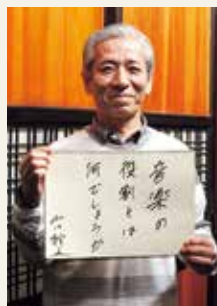 音楽の
役割とは
何でしょうか